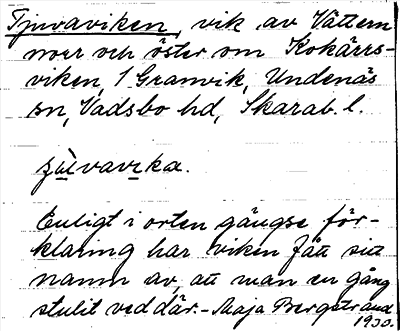 Tjuvaviken, vik av Vättern
norr och öster om Kokärrs-
viken, i Granvik, Undenäs
sn, Vadsbo hd, Skarab. l.
Enligt i orten gängse för-
klaring har viken fått sitt
namn av, att man en gång
stulit ved där. - Maja Bergstrand
1930.